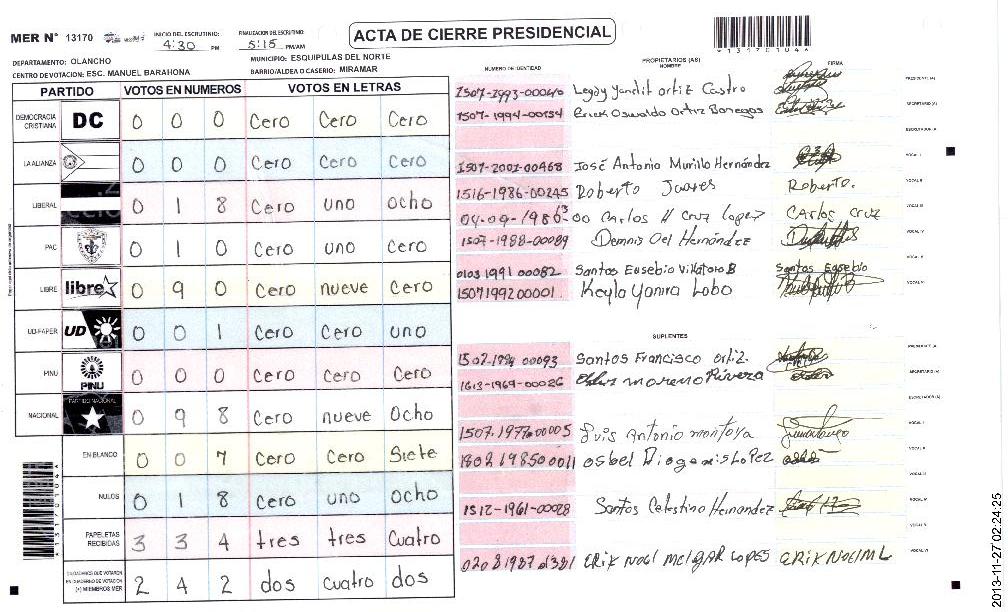 MER N° 13170
INICIO DEL ESCRUTINIO: 4:30 PM
FINALIZACION DEL ESCRUTINIO: 5:15 PM/AM
ACTA DE CIERRE PRESIDENCIAL
DEPARTAMENTO: OLANCHO
MUNICIPIO: ESQUIPULAS DEL NORTE
CENTRO DE VOTACION: ESC. MANUEL BARAHONA
BARRIO/ALDEA O CASERIO: MIRAMAR
PARTIDO VOTOS EN NUMEROS VOTOS EN LETRAS
DEMOCRACIA CRISTIANA DC 0 0 0 Cero Cero Cero
LA ALIANZA 0 0 0 Cero Cero Cero
LIBERAL 0 1 8 Cero uno ocho
PAC 0 1 0 Cero uno Cero
LIBRE libre 0 9 0 Cero nueve Cero
UD-FAPER UD 0 0 1 Cero Cero uno
PINU PINU 0 0 0 Cero Cero Cero
NACIONAL PARTIDO NACIONAL 0 9 8 Cero nueve Ocho
EN BLANCO 0 0 7 Cero Cero Siete
NULOS 0 1 8 Cero uno Ocho
PAPELETAS RECIBIDAS 3 3 4 tres tres Cuatro
CIUDADANOS QUE VOTARON EN CUADERNO DE VOTACION (+) MIEMBROS MER 2 4 2 dos cuatro dos
NUMERO DE IDENTIDAD
PROPIETARIOS (AS)
NOMBRE
FIRMA
1507-1993-00040 Ortiz Castro PRESIDENTE (A)
1507-1994-00154 Erick Oswaldo Ortiz SECRETARIO (A)
ESCRUTADOR (A)
1507-2001-00468 José Antonio Murillo Hernández VOCAL I
1516-1986-00245 Roberto Juares Roberto. VOCAL II
Carlos H Cruz Lopez Carlos cruz VOCAL III
1507-1988-00089 Dennis Oel Hernández VOCAL IV
0103 1991 00082 Santos Eusebio Villatoro B Santos Eusebio VOCAL V
1507199200001 Keyla Yanira Lobo VOCAL VI
SUPLENTES
00093 Santos Francisco Ortiz. PRESIDENTE (A)
1613-1969-00026 moreno Rivera SECRETARIO (A)
ESCRUTADOR (A)
1507.1977.00005 Luis Antonio montoya VOCAL I
1802 1985 00011 Osbel LoPez VOCAL II
VOCAL III
1512-1961-00028 Santos Celestino Hernandez VOCAL IV
VOCAL V
0208 1987 01381 ERik Noel MelgAR LOPES ERIK NOEL M L VOCAL VI
*13170104*
2013-11-27 02:24:25